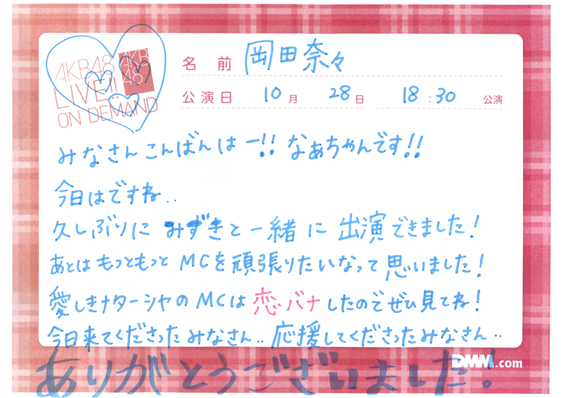 AKB48
LIVE!!
ON DEMAND
AKB
48
名前 岡田奈々
公演日 10月 28日 18:30 公演
みなさんこんばんはー!! なぁちゃんです!!
今日はですね..
久しぶりに みずきと一緒に 出演できました!
あとは もっともっと MCを頑張りたいなって思いました!
愛しきナターシャのMCは 恋バナ したのでぜひ見てね!
今日来てくださったみなさん.. 応援してくださったみなさん..
ありがとうございました!
DMM.com